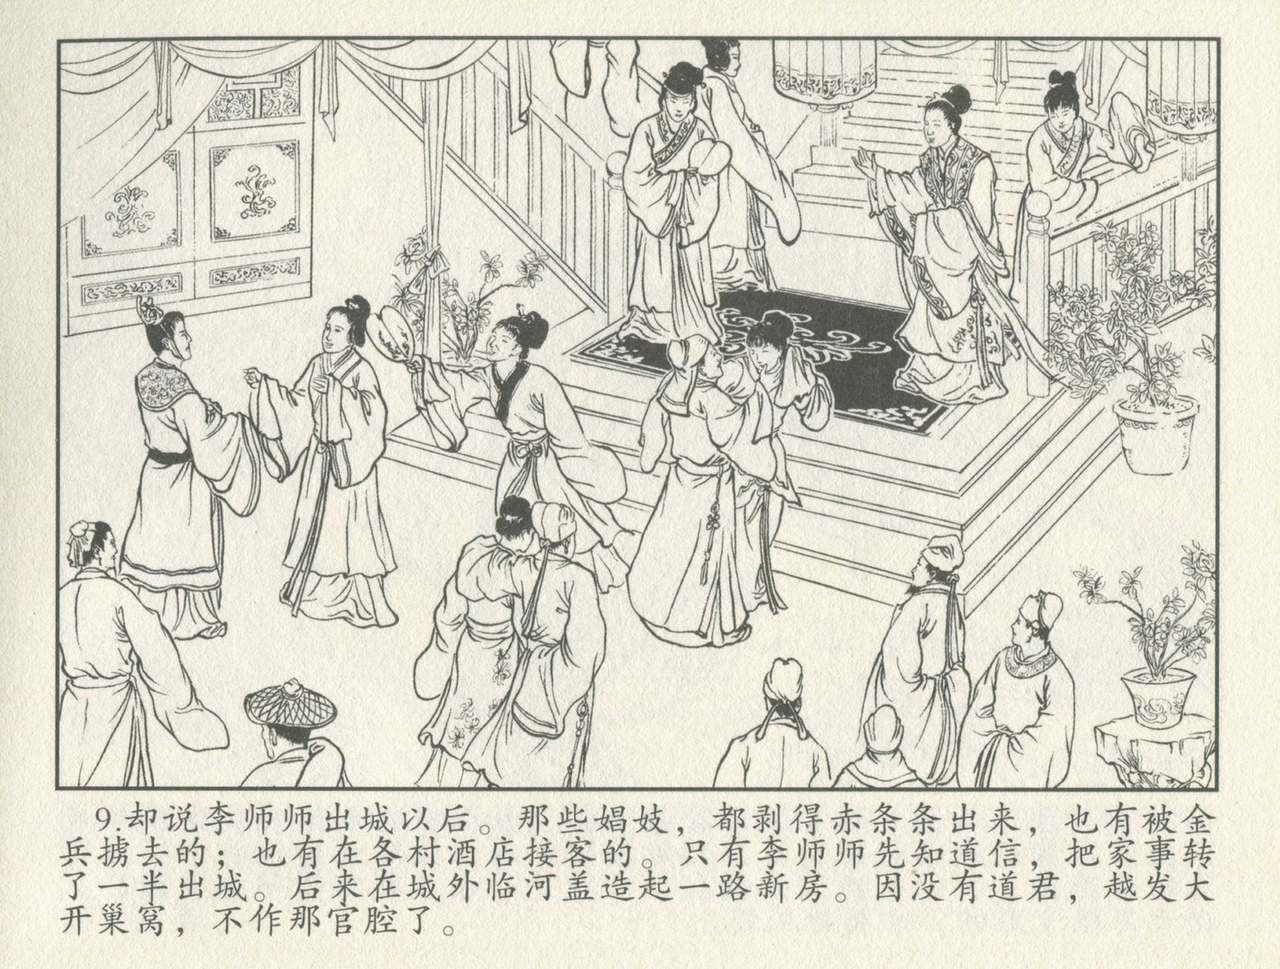 9.却说李师师出城以后。那些娼妓，都剥得赤条条出来，也有被金
兵掳去的；也有在各村酒店接客的。只有李师师先知道信，把家事转
了一半出城。后来在城外临河盖造起一路新房。因没有道君，越发大
开巢窝，不作那官腔了。